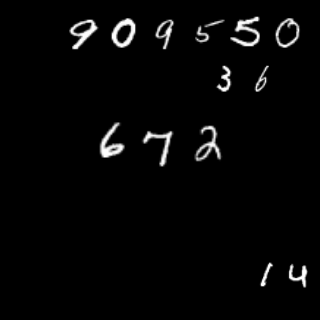 909550
36
672
14